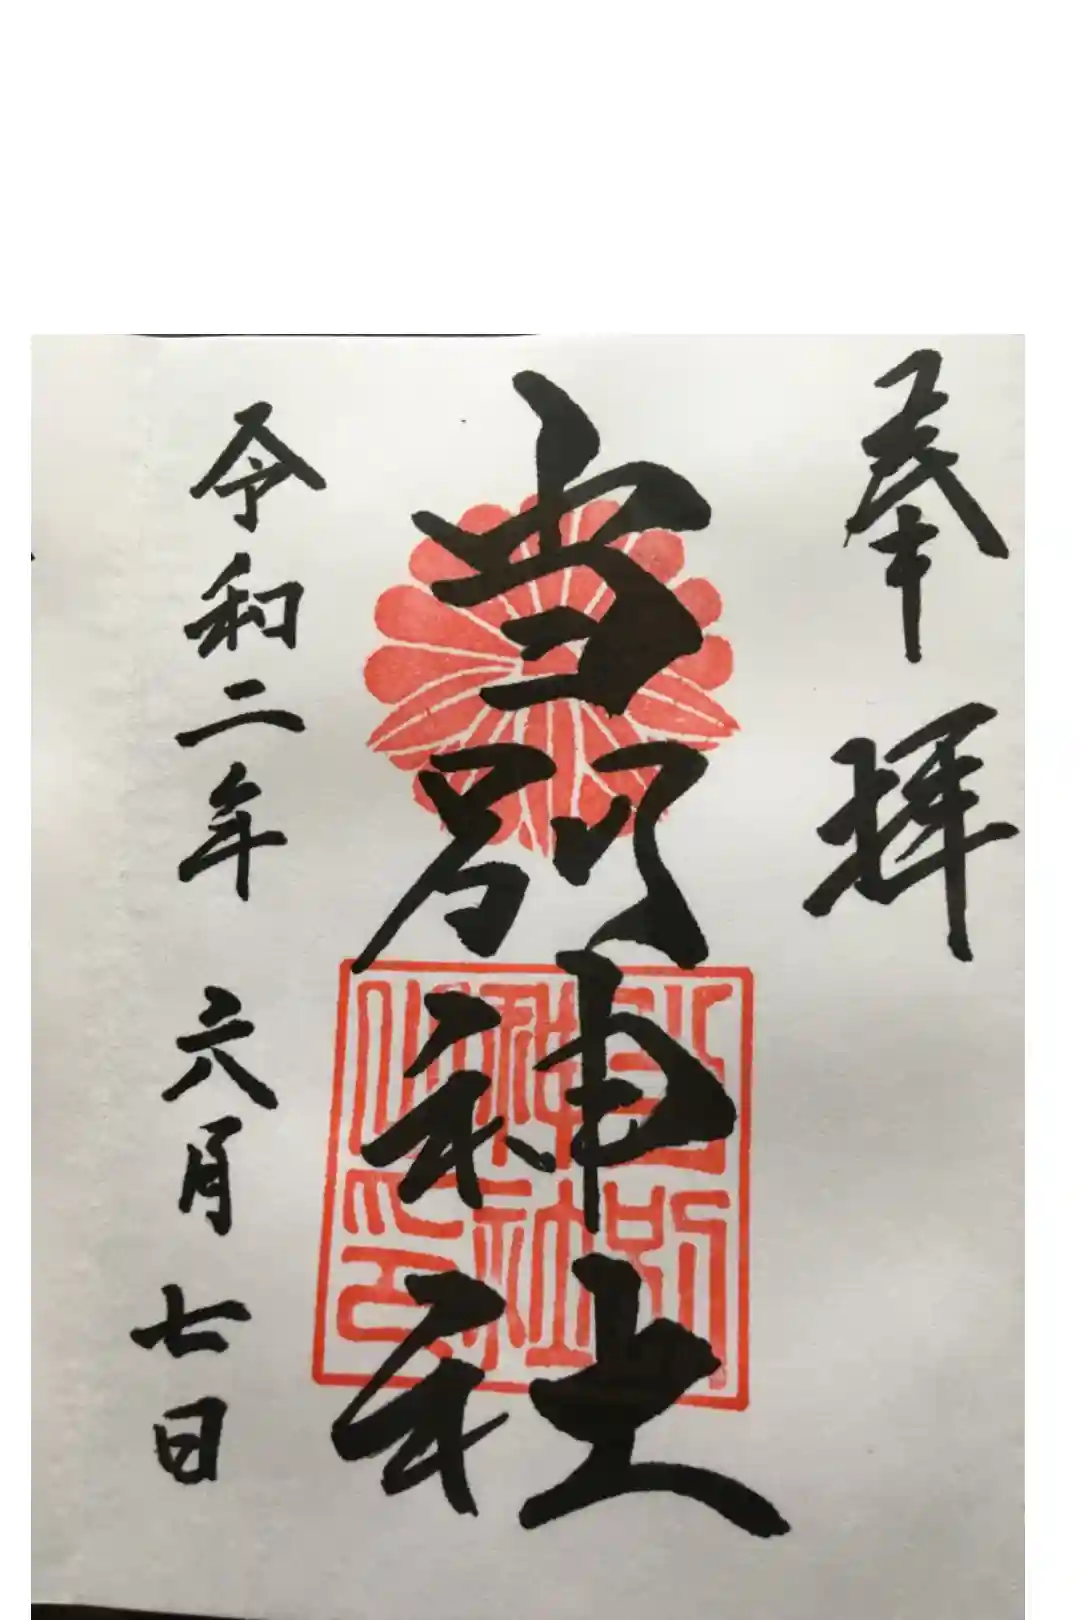 奉拝
当別神社
令和二年 六月 七日